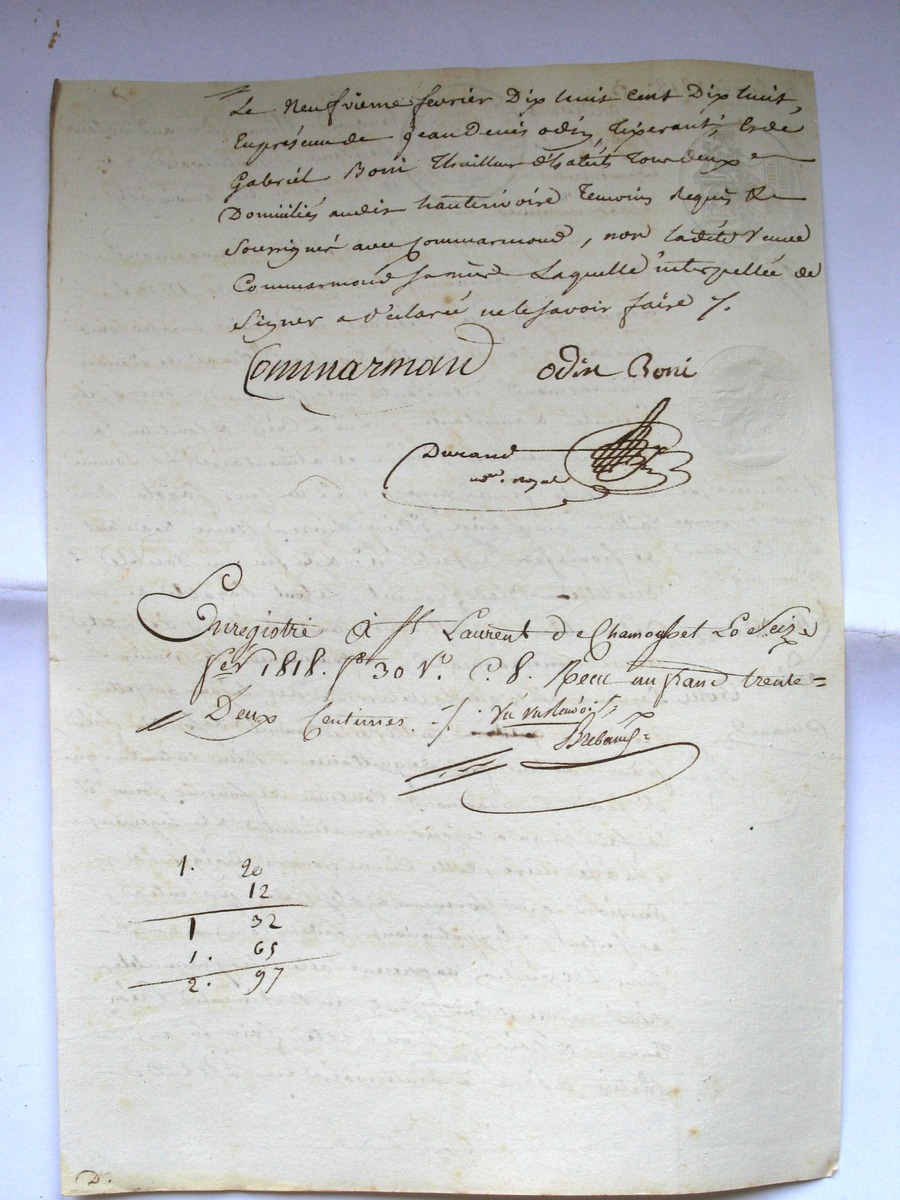 Le Neufvieme fevrier Dix huit cent Dix huit,
En présence de jean Denis odin, tixerant, et de
Gabriel Boni thailleur d'habits Tous deux
Domiciliés audit hauterivoire Temoins Requis &
Soussignés avec Commarmond, non ladite Veuve
Commarmond sa mère Laquelle interpellée de
Signer a déclaré ne le savoir faire /.
Commarmond odin Boni
Durand
nre. royal
Enregistré à St Laurent de Chamousset Le Seize
fer 1818. fo 30 Vo. C. 8. Recu un franc trente=
Deux Centimes ./.
1. 20
12
1 32
1. 65
2. 97
D.